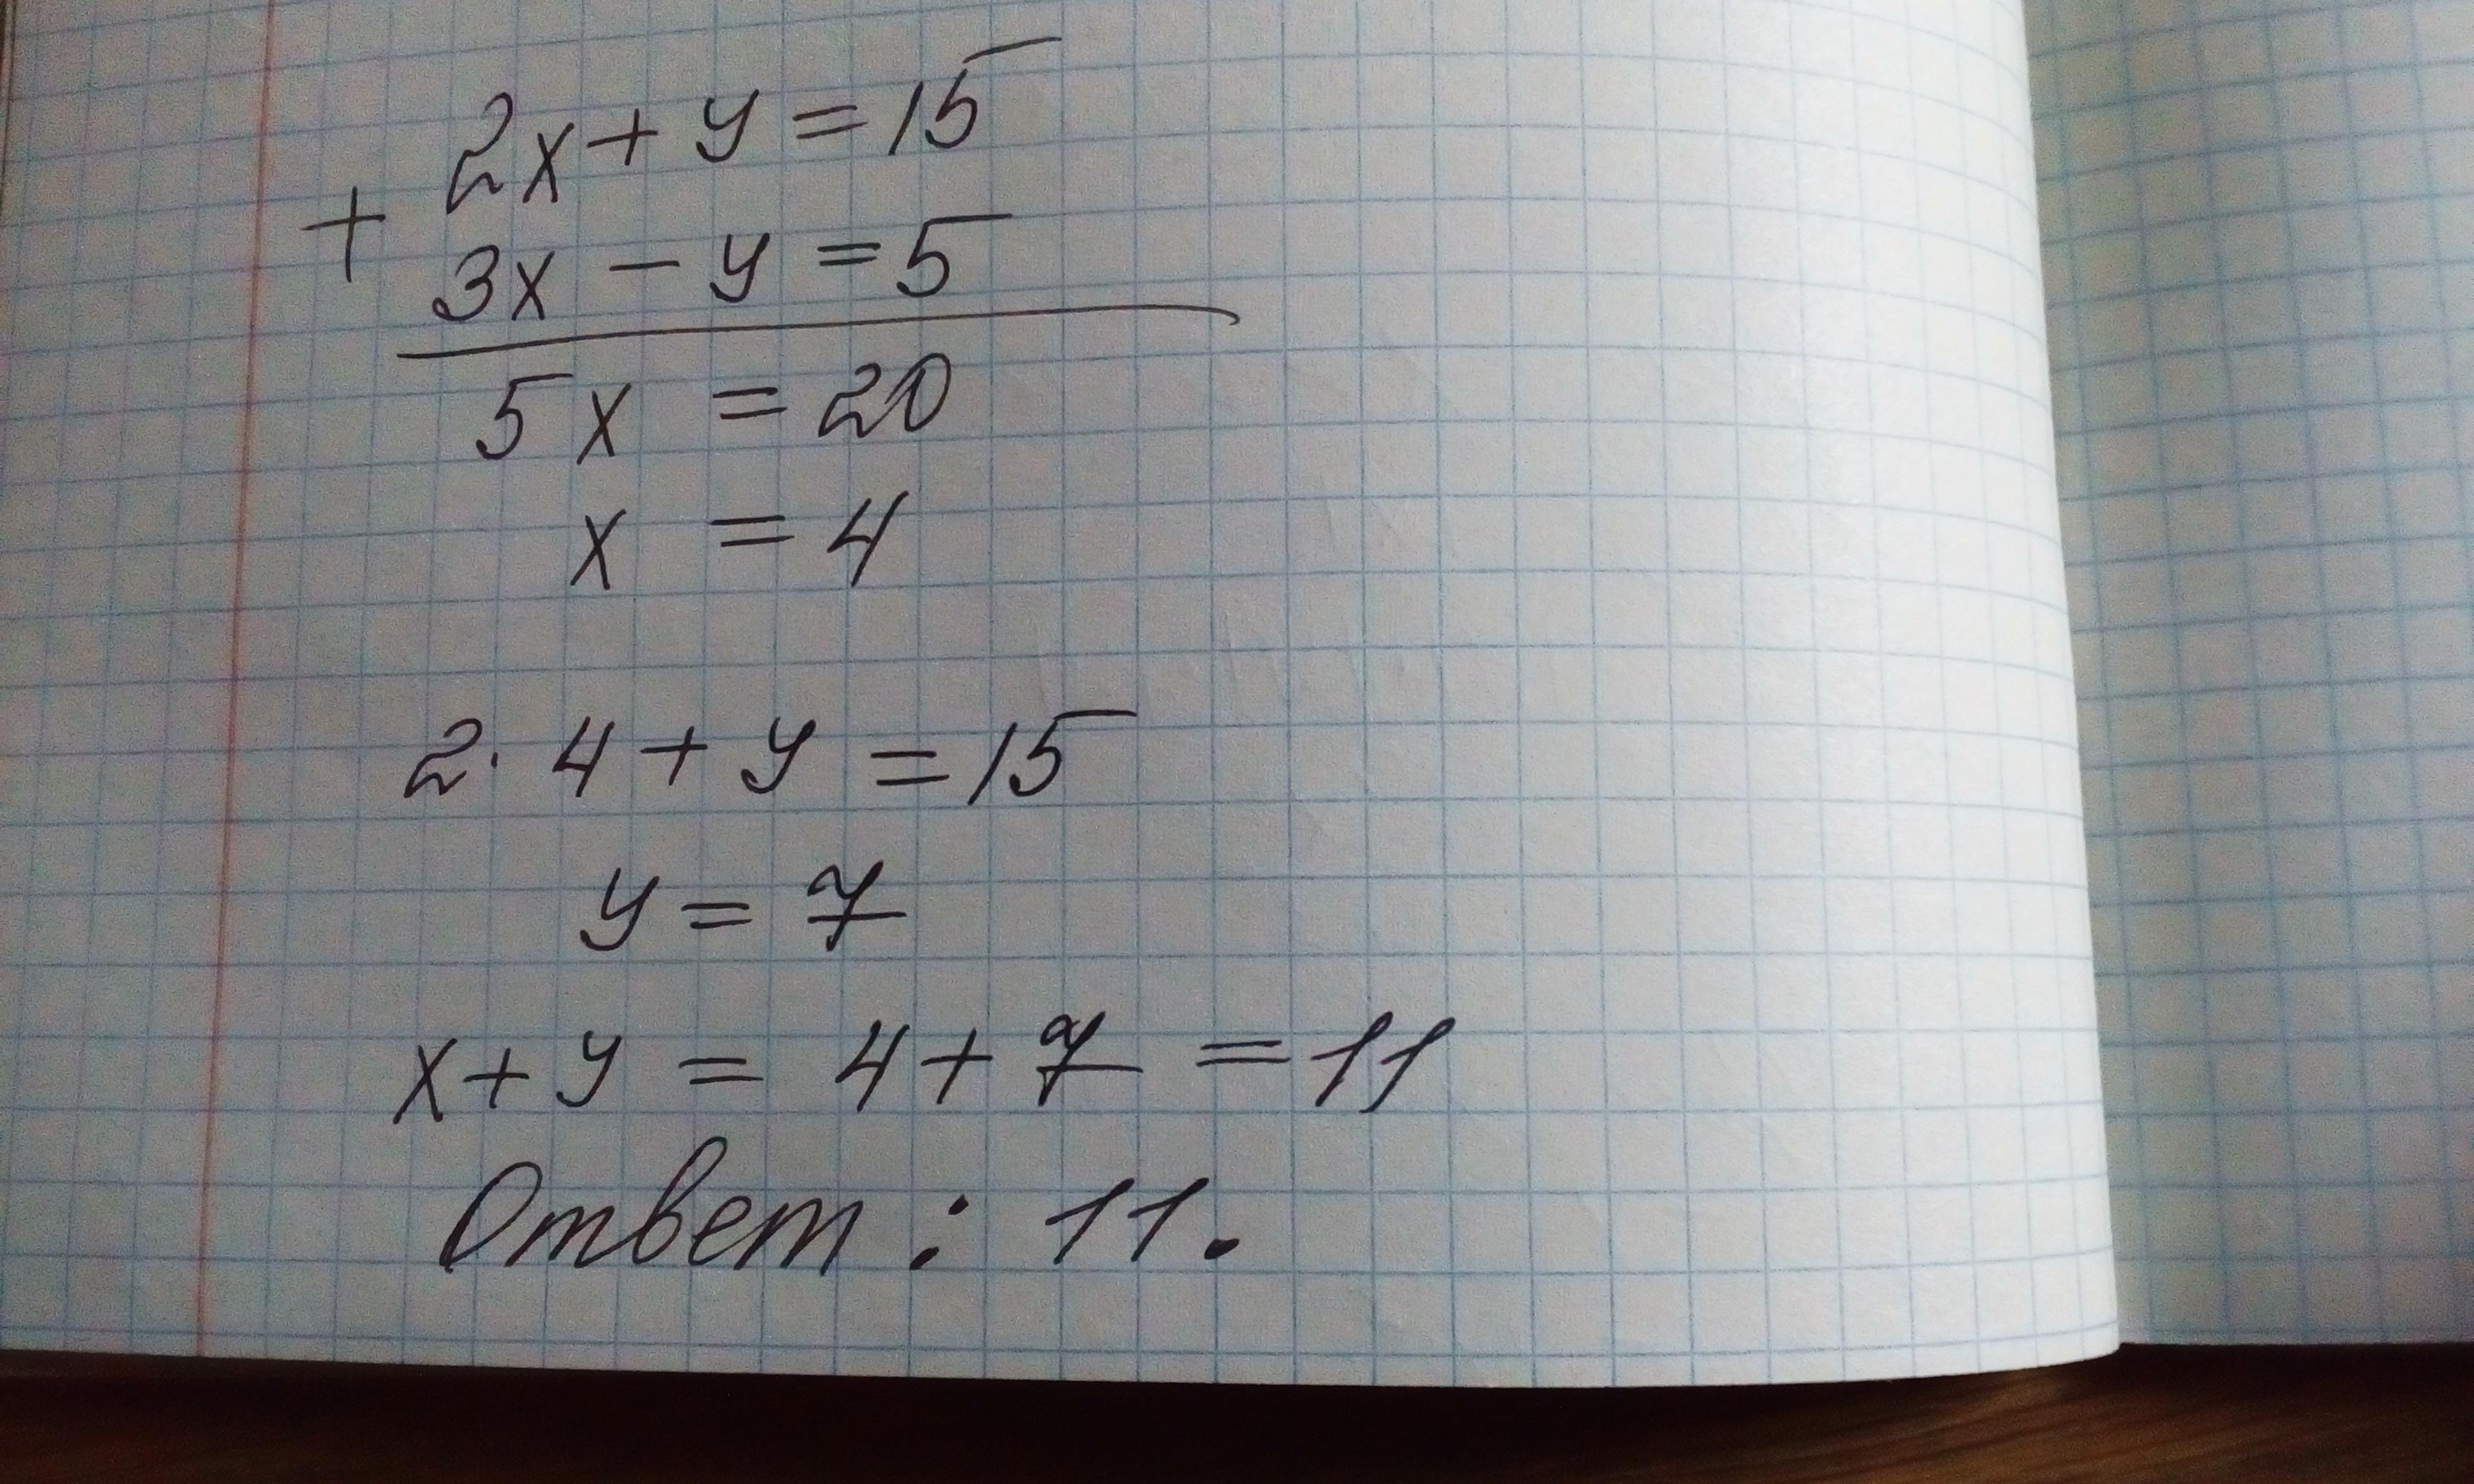 2x + y = 15
+
3x - y = 5
5x = 20
x = 4
2 · 4 + y = 15
y = 7
x + y = 4 + 7 = 11
Ответ : 11.